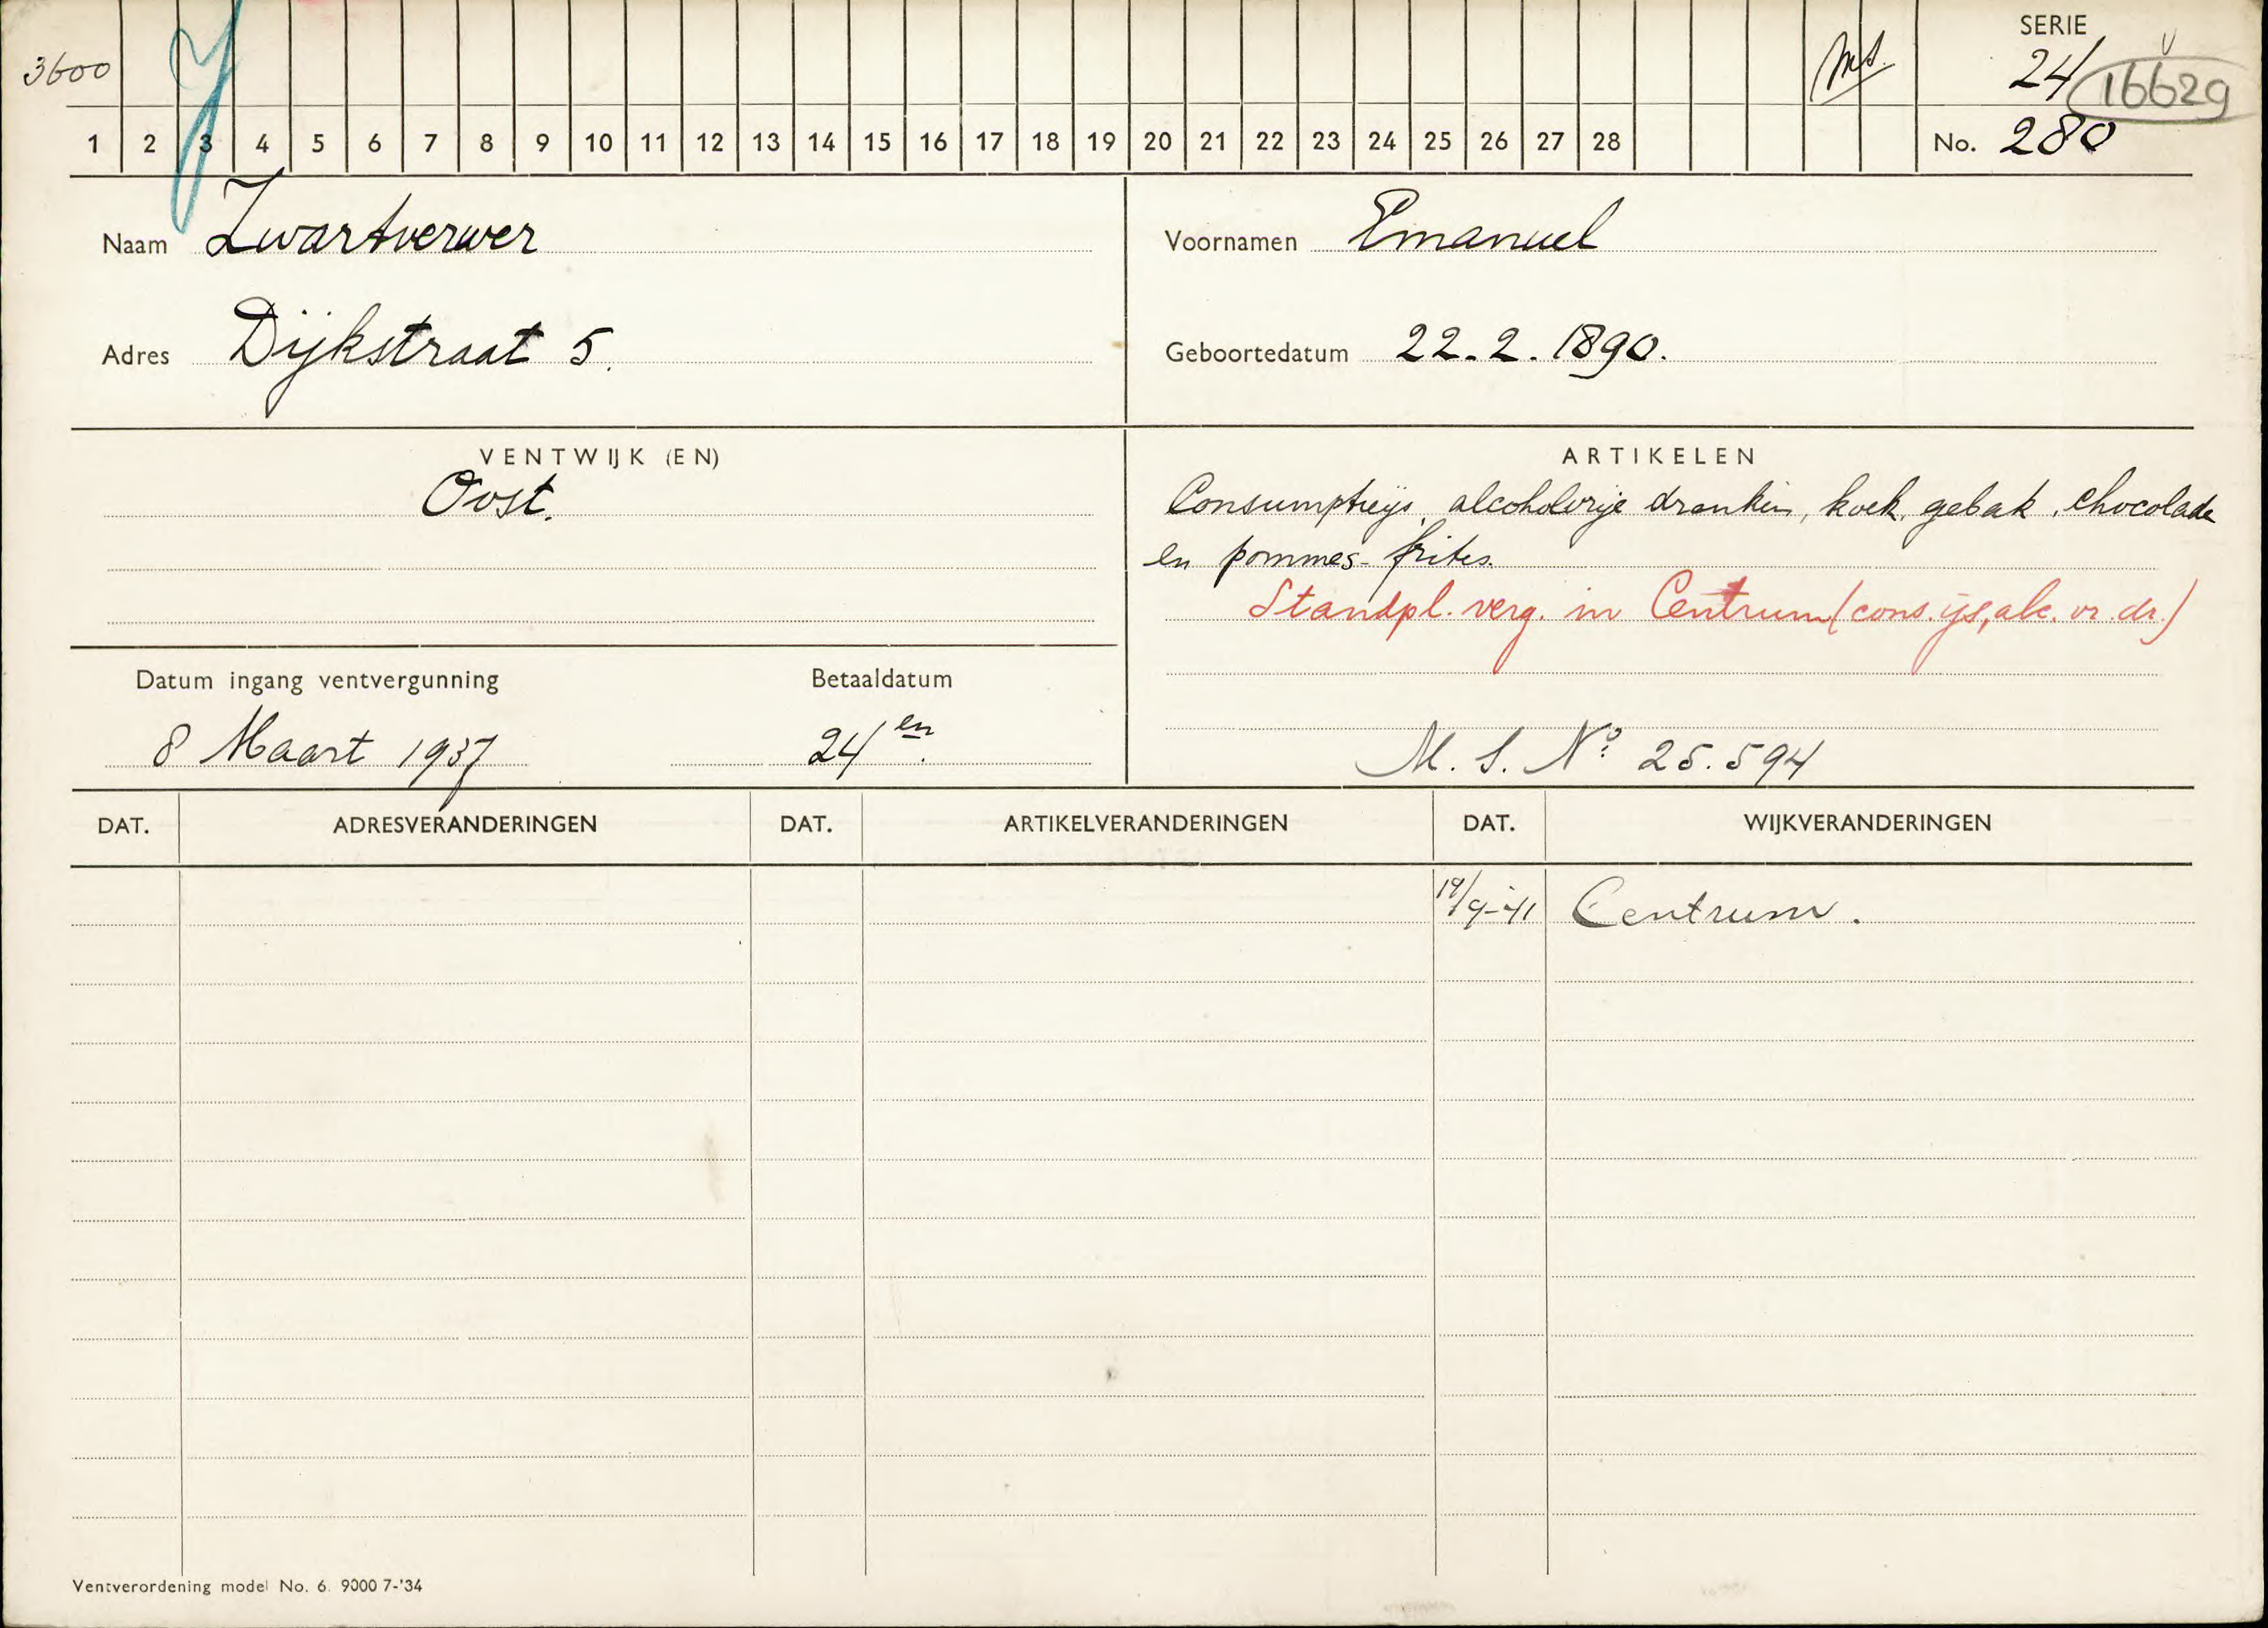 3600
J
ms.
SERIE
24
16629
1 2 3 4 5 6 7 8 9 10 11 12 13 14 15 16 17 18 19 20 21 22 23 24 25 26 27 28
No. 280
Naam Zwartverwer
Voornamen Emanuel
Adres Dijkstraat 5.
Geboortedatum 22.2.1890.
VENTWIJK (EN)
Oost.
ARTIKELEN
Consumptieijs, alcoholvrije dranken, koek, gebak, chocolade
en pommes-frites.
Standpl. verg. in Centrum (cons. ijs, alc. vr. dr.)
Datum ingang ventvergunning
8 Maart 1937
Betaaldatum
24en.
M. S. No 25.594
DAT. ADRESVERANDERINGEN DAT. ARTIKELVERANDERINGEN DAT. WIJKVERANDERINGEN
19/9-'41 Centrum.
Ventverordening model No. 6. 9000 7-'34